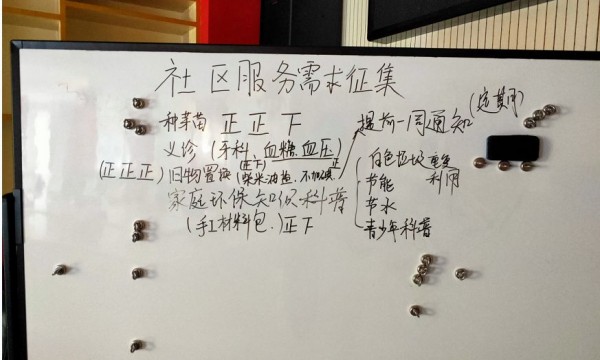 社区服务需求征集
种菜苗 正正下 提前一周通知 (定期)
义诊 (牙科、血糖、血压)
(正正下) 正
(正正正) 旧物置换 (柴米油盐、不加碘)
家庭环保知识科普
(手工材料包.) 正下
白色垃圾重复利用
节能
节水
青少年科普